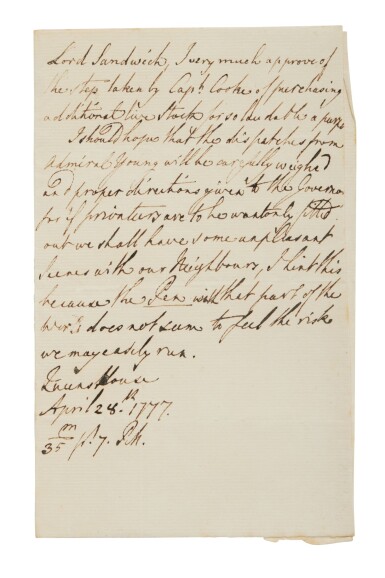 Lord Sandwich, I very much approve of
the step taken by Capt. Cooke of purchasing
additional live Stock for so laudable a purpose
I should hope that the dispatches from
Admiral Young will be carefully weighed
and proper directions given to the Governor
for if privateers are to be wantonly fitted
out we shall have some unpleasant
Scenes with our Neighbours, I hint this
because the Pen with that part of the
does not seem to feel the risk
we may easily run.
Queens House
April 28th. 1777.
m
35 pt. 7. P.M.